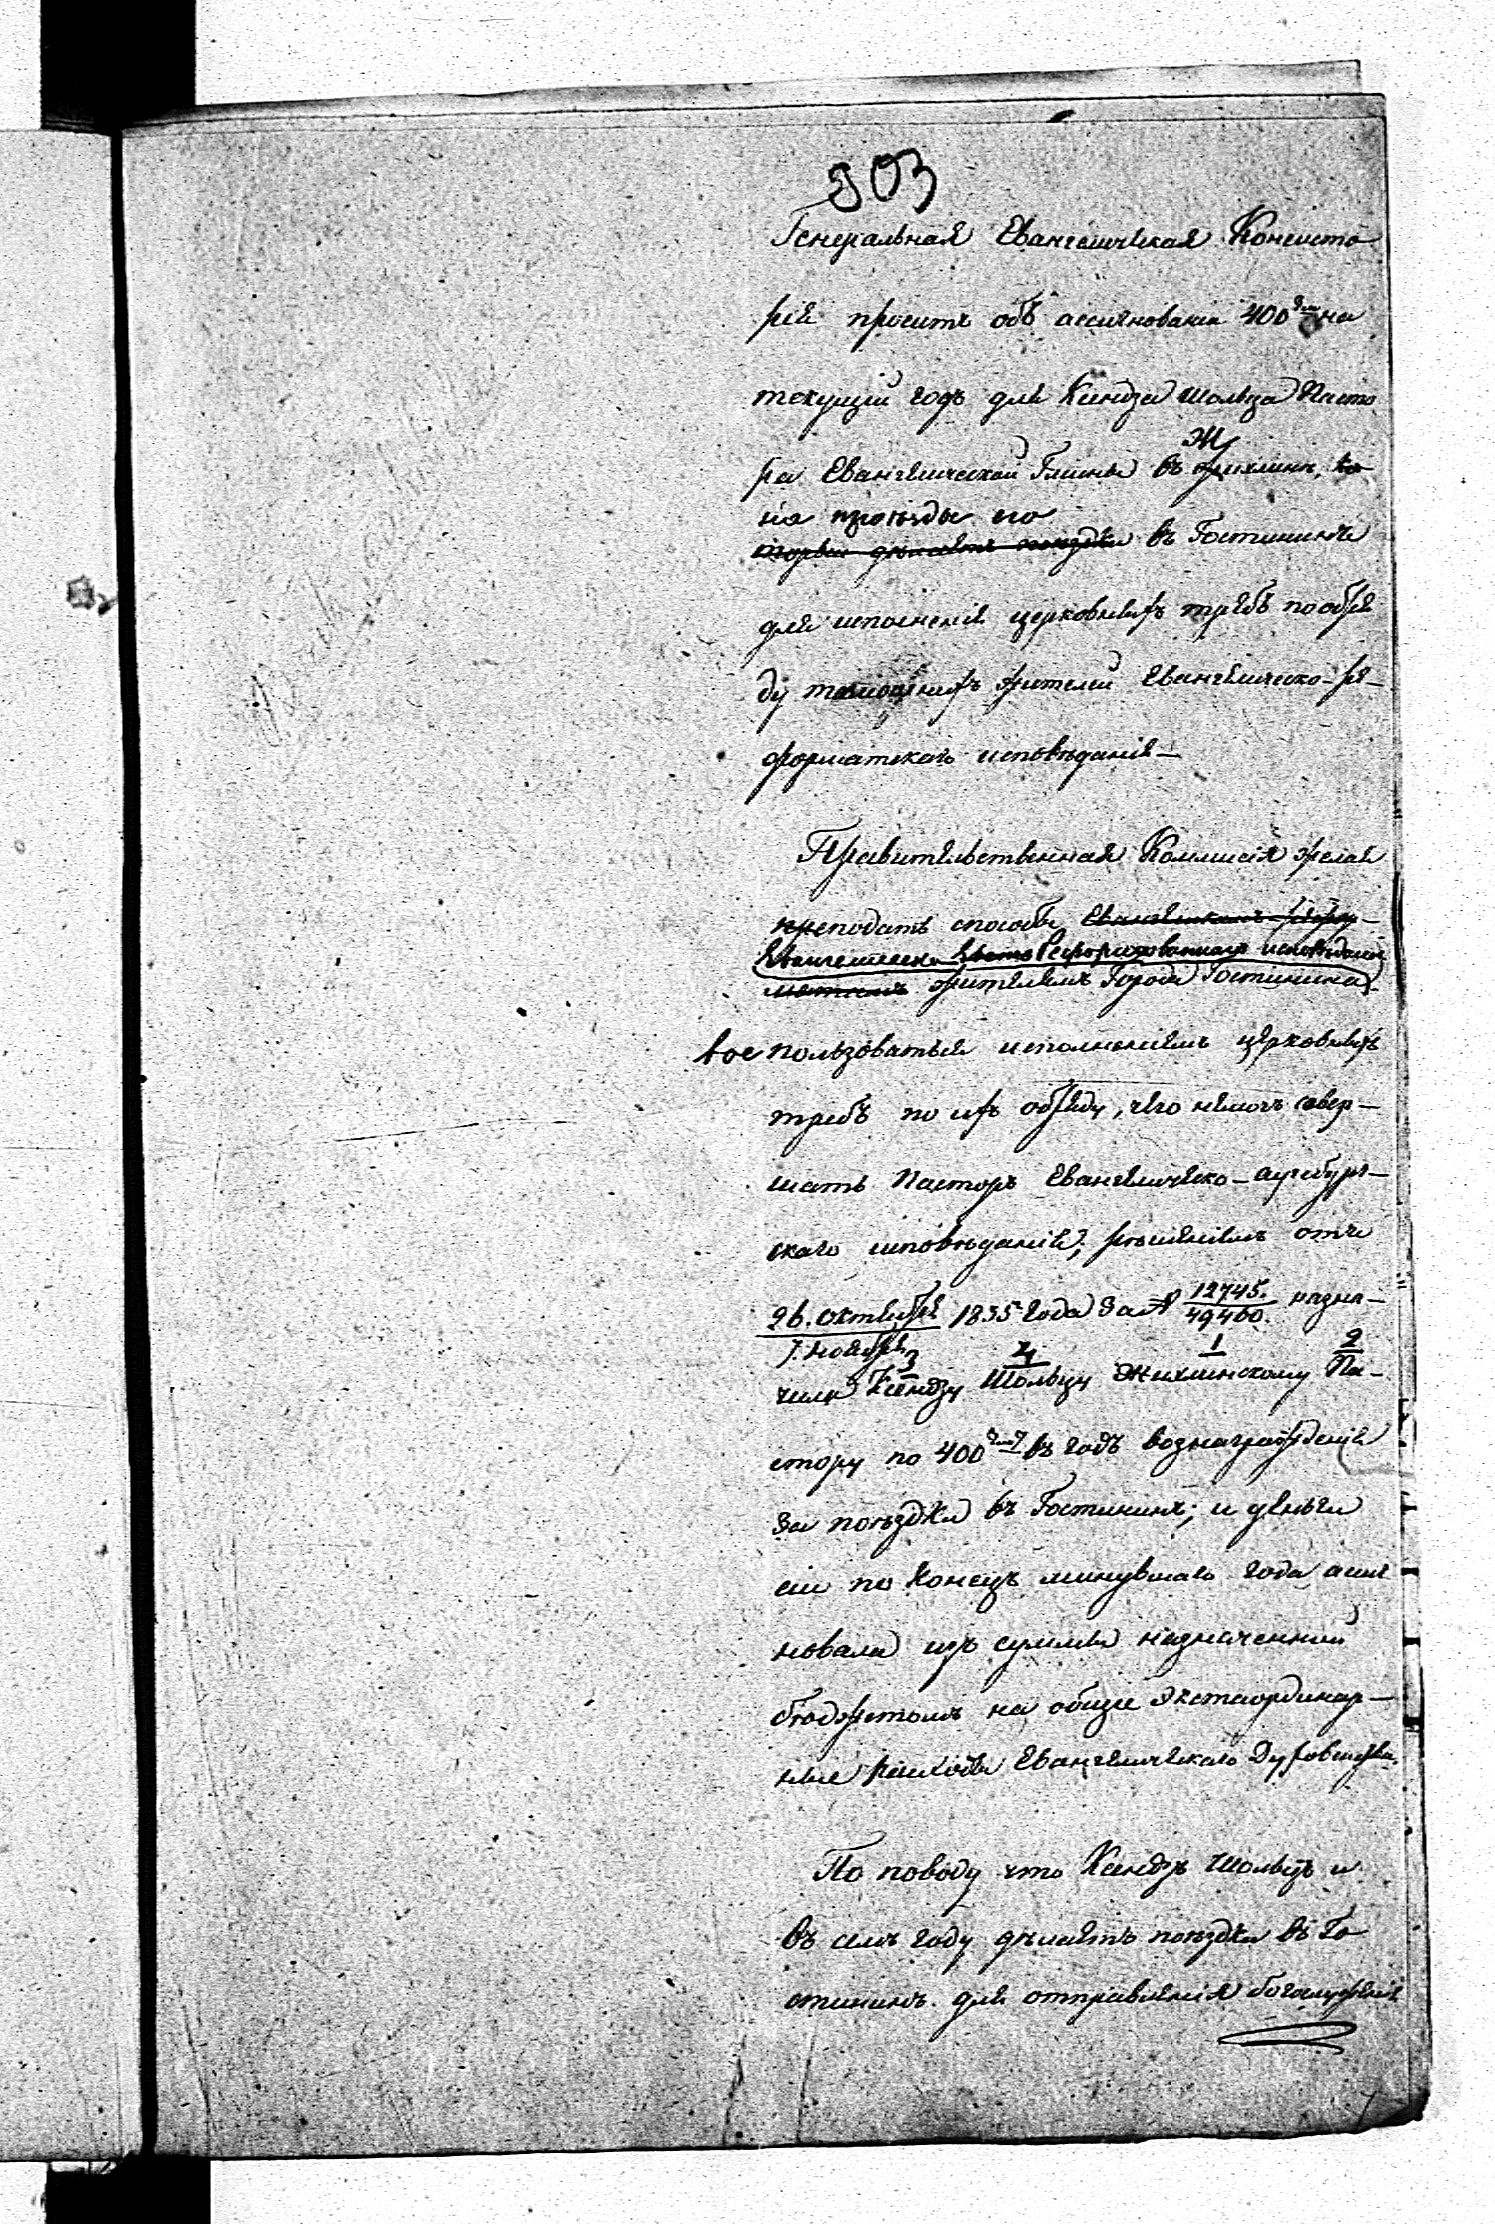 303
Генеральная Евангелическая Консисто
рія проситъ объ ассигнованіи 400 на
текущій годъ для Ксендза Шольца Пасто
ра Евангелической Гмины въ Жихлинѣ,
на проѣзды его
въ Гостининъ
для исполненія церковныхъ требъ по обря
ду тамошнихъ жителей Евангелическо-ре-
форматскаго исповѣданія—
Правительственная Коммисія желая
преподать способы Евангеликамъ-Рефор-
Евангелическо Реформированнаго исповѣданія
матамъ жителямъ Города Гостинина
воспользоваться исполненіемъ церковныхъ
требъ по ихъ обряду, чего немогъ совер-
шать Пасторъ Евангелическо-аугсбург-
скаго исповѣданія; рѣшеніемъ отъ
26. Октября 1835 года за № 12745. назна-
7. Ноября 49460.
3 4 1 2
чила Ксендзу Шольцу Жихлинскому Па-
стору по 400 въ годъ вознагражденія
за поѣздки въ Гостининъ; и деньги
сіи по конецъ минувшаго года асиг
новала изъ суммы назначенной
бюджетомъ на общіе экстаординар-
ные расходы Евангелическаго Духовенства.
По поводу что Ксендзъ Шольцъ и
въ семъ году дѣлаетъ поѣздки въ Го
стининъ для отправленія богослуженія